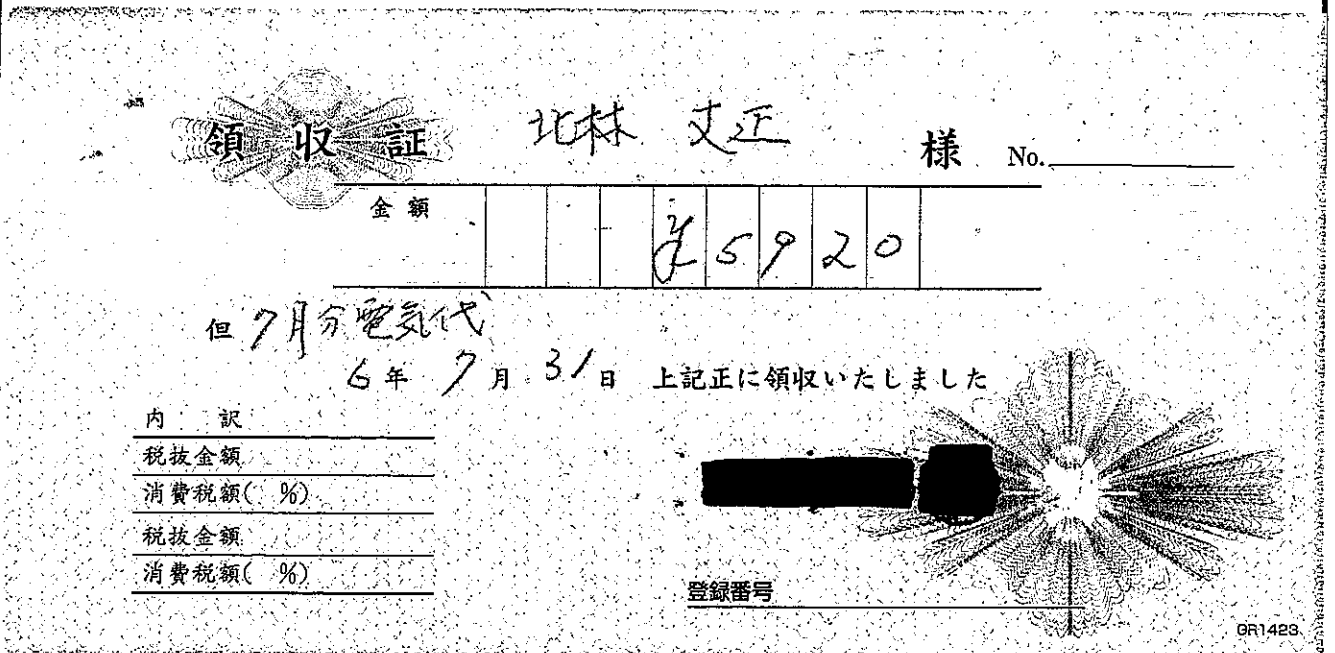 領収証 北林 丈正 様 No.
金額 ¥5920
但 7月分電気代
6年 7月 31日 上記正に領収いたしました
内 訳
税抜金額
消費税額( %)
税抜金額
消費税額( %)
登録番号
GR1423